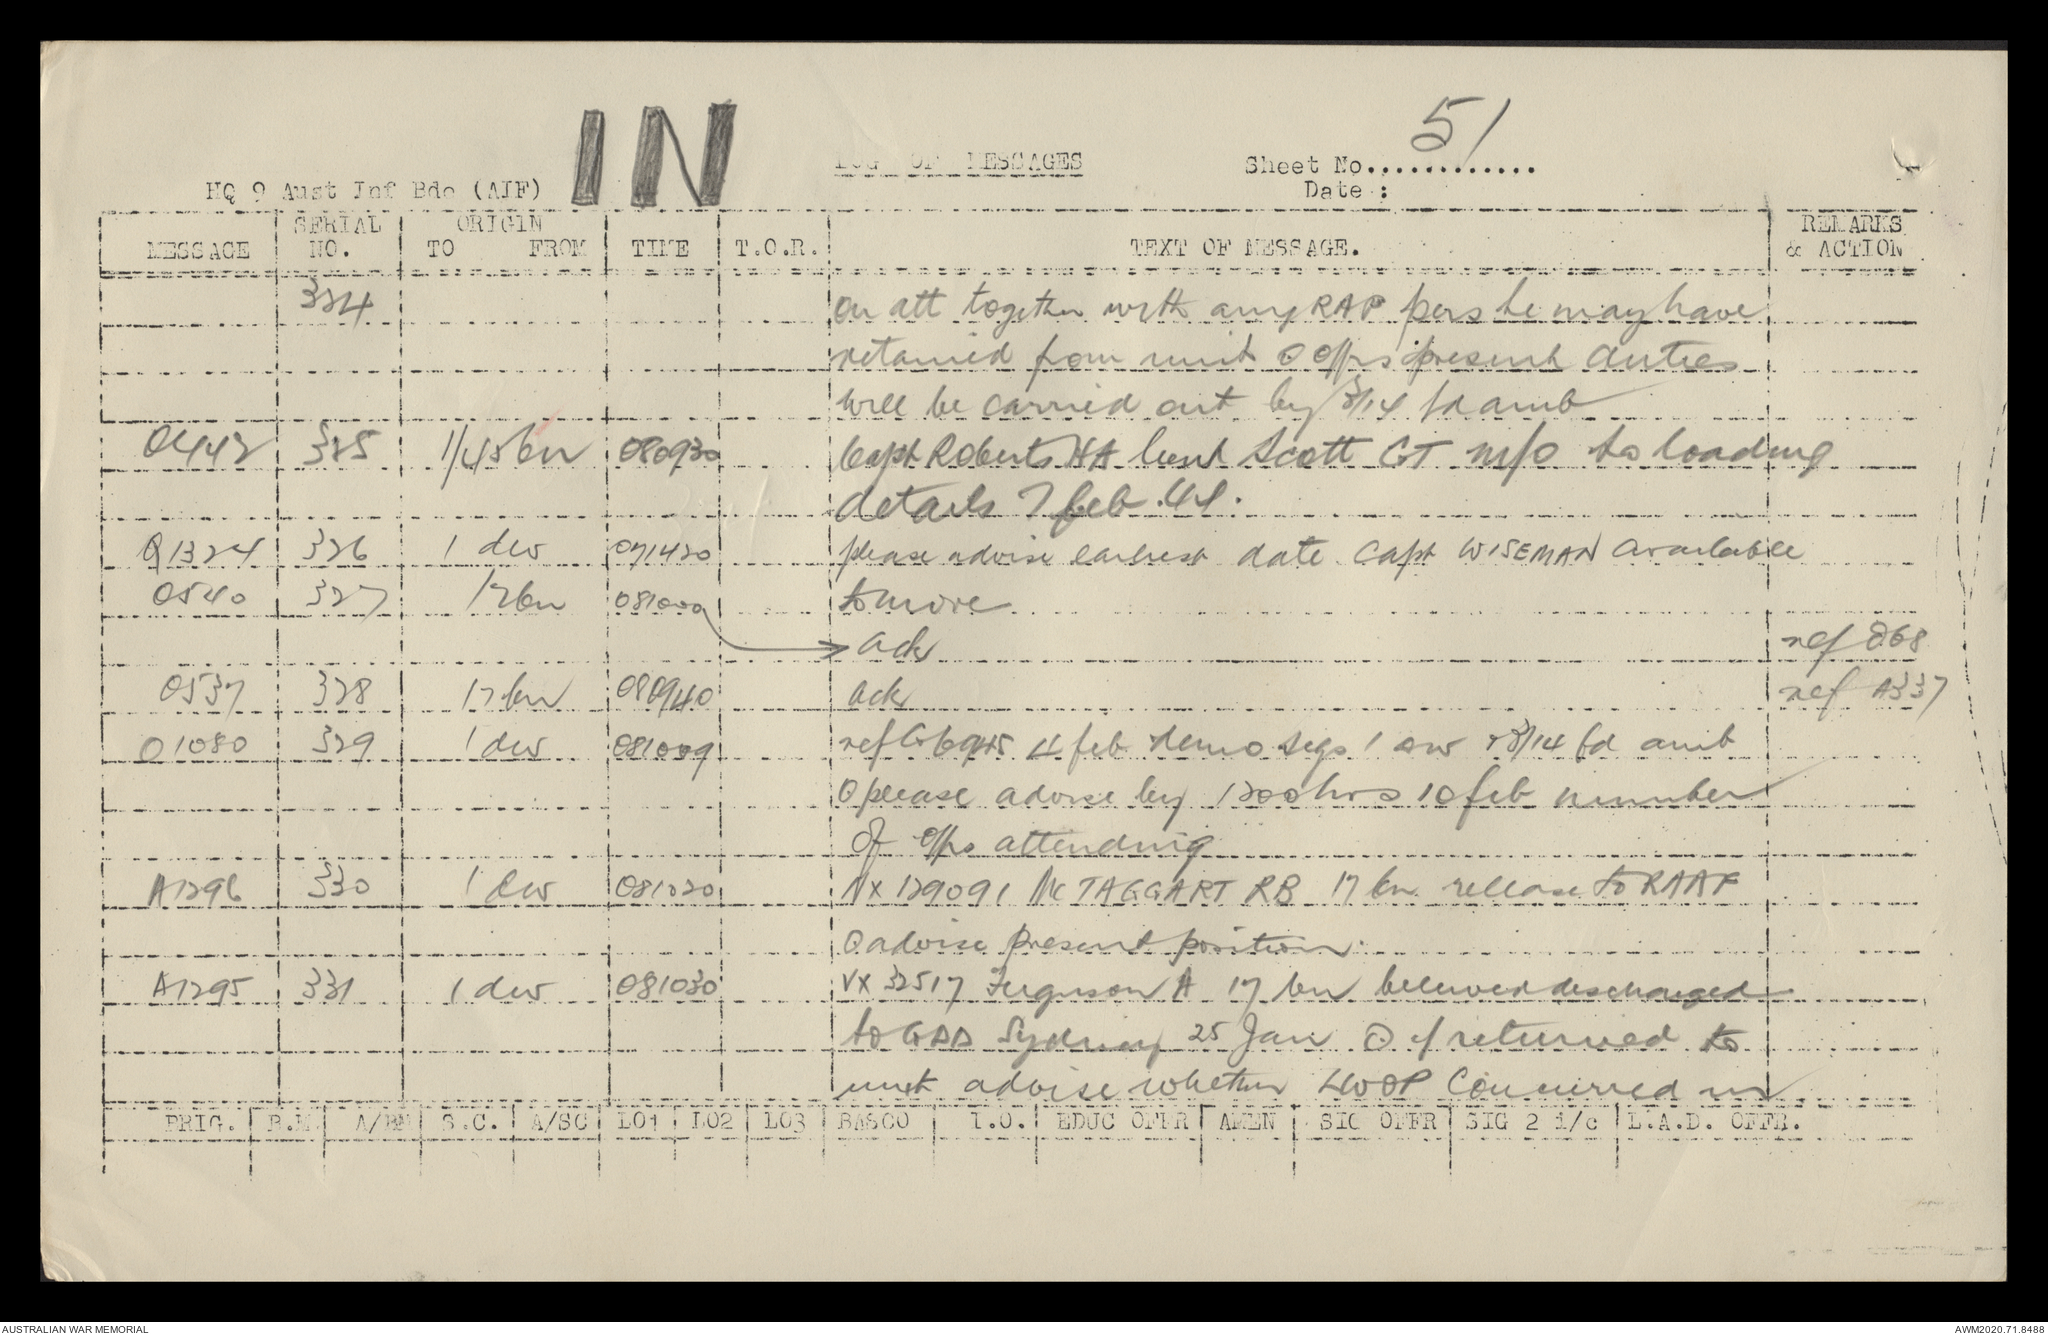 IN
LOG OF MESSAGES
Sheet No............. 51
Date :
HQ 9 Aust Inf Bde (AIF)
MESSAGE SERIAL NO. ORIGIN TO FROM TIME T.O.R. TEXT OF MESSAGE. REMARKS & ACTION
324 on att together with any RAP pers he may have
retained from unit O offrs present duties
will be carried out by 3/14 fd amb
O442 325 1/45 bn 080930 Capt Roberts HA Lieut Scott GT m/o to loading
details 7 feb 44.
Q1324 326 1 div 071420 please advise earliest date Capt WISEMAN available
O540 327 17bn 081000 to move
ack ref O68
O537 328 17 bn 080940 ack ref A337
O1080 329 1 div 081009 ref G6945 4 feb demo 1 3/14 fd amb
O please advise by 1200 hrs 10 feb number
of offrs attending
A1296 330 1 div 081020 NX 129091 McTAGGART RB 17 bn release to RAAF
O advise present position.
A1295 331 1 div 081030 VX 32517 Ferguson A 17 bn believed discharged
to GDD Sydney 25 Jan O if returned to
unit advise whether concurred in
BRIG. B.M. A/BM S.C. A/SC LO1 LO2 LO3 BASCO I.O. EDUC OFFR AMEN SIG OFFR SIG 2 i/c L.A.D. OFFR.
AUSTRALIAN WAR MEMORIAL
AWM2020.71.8488